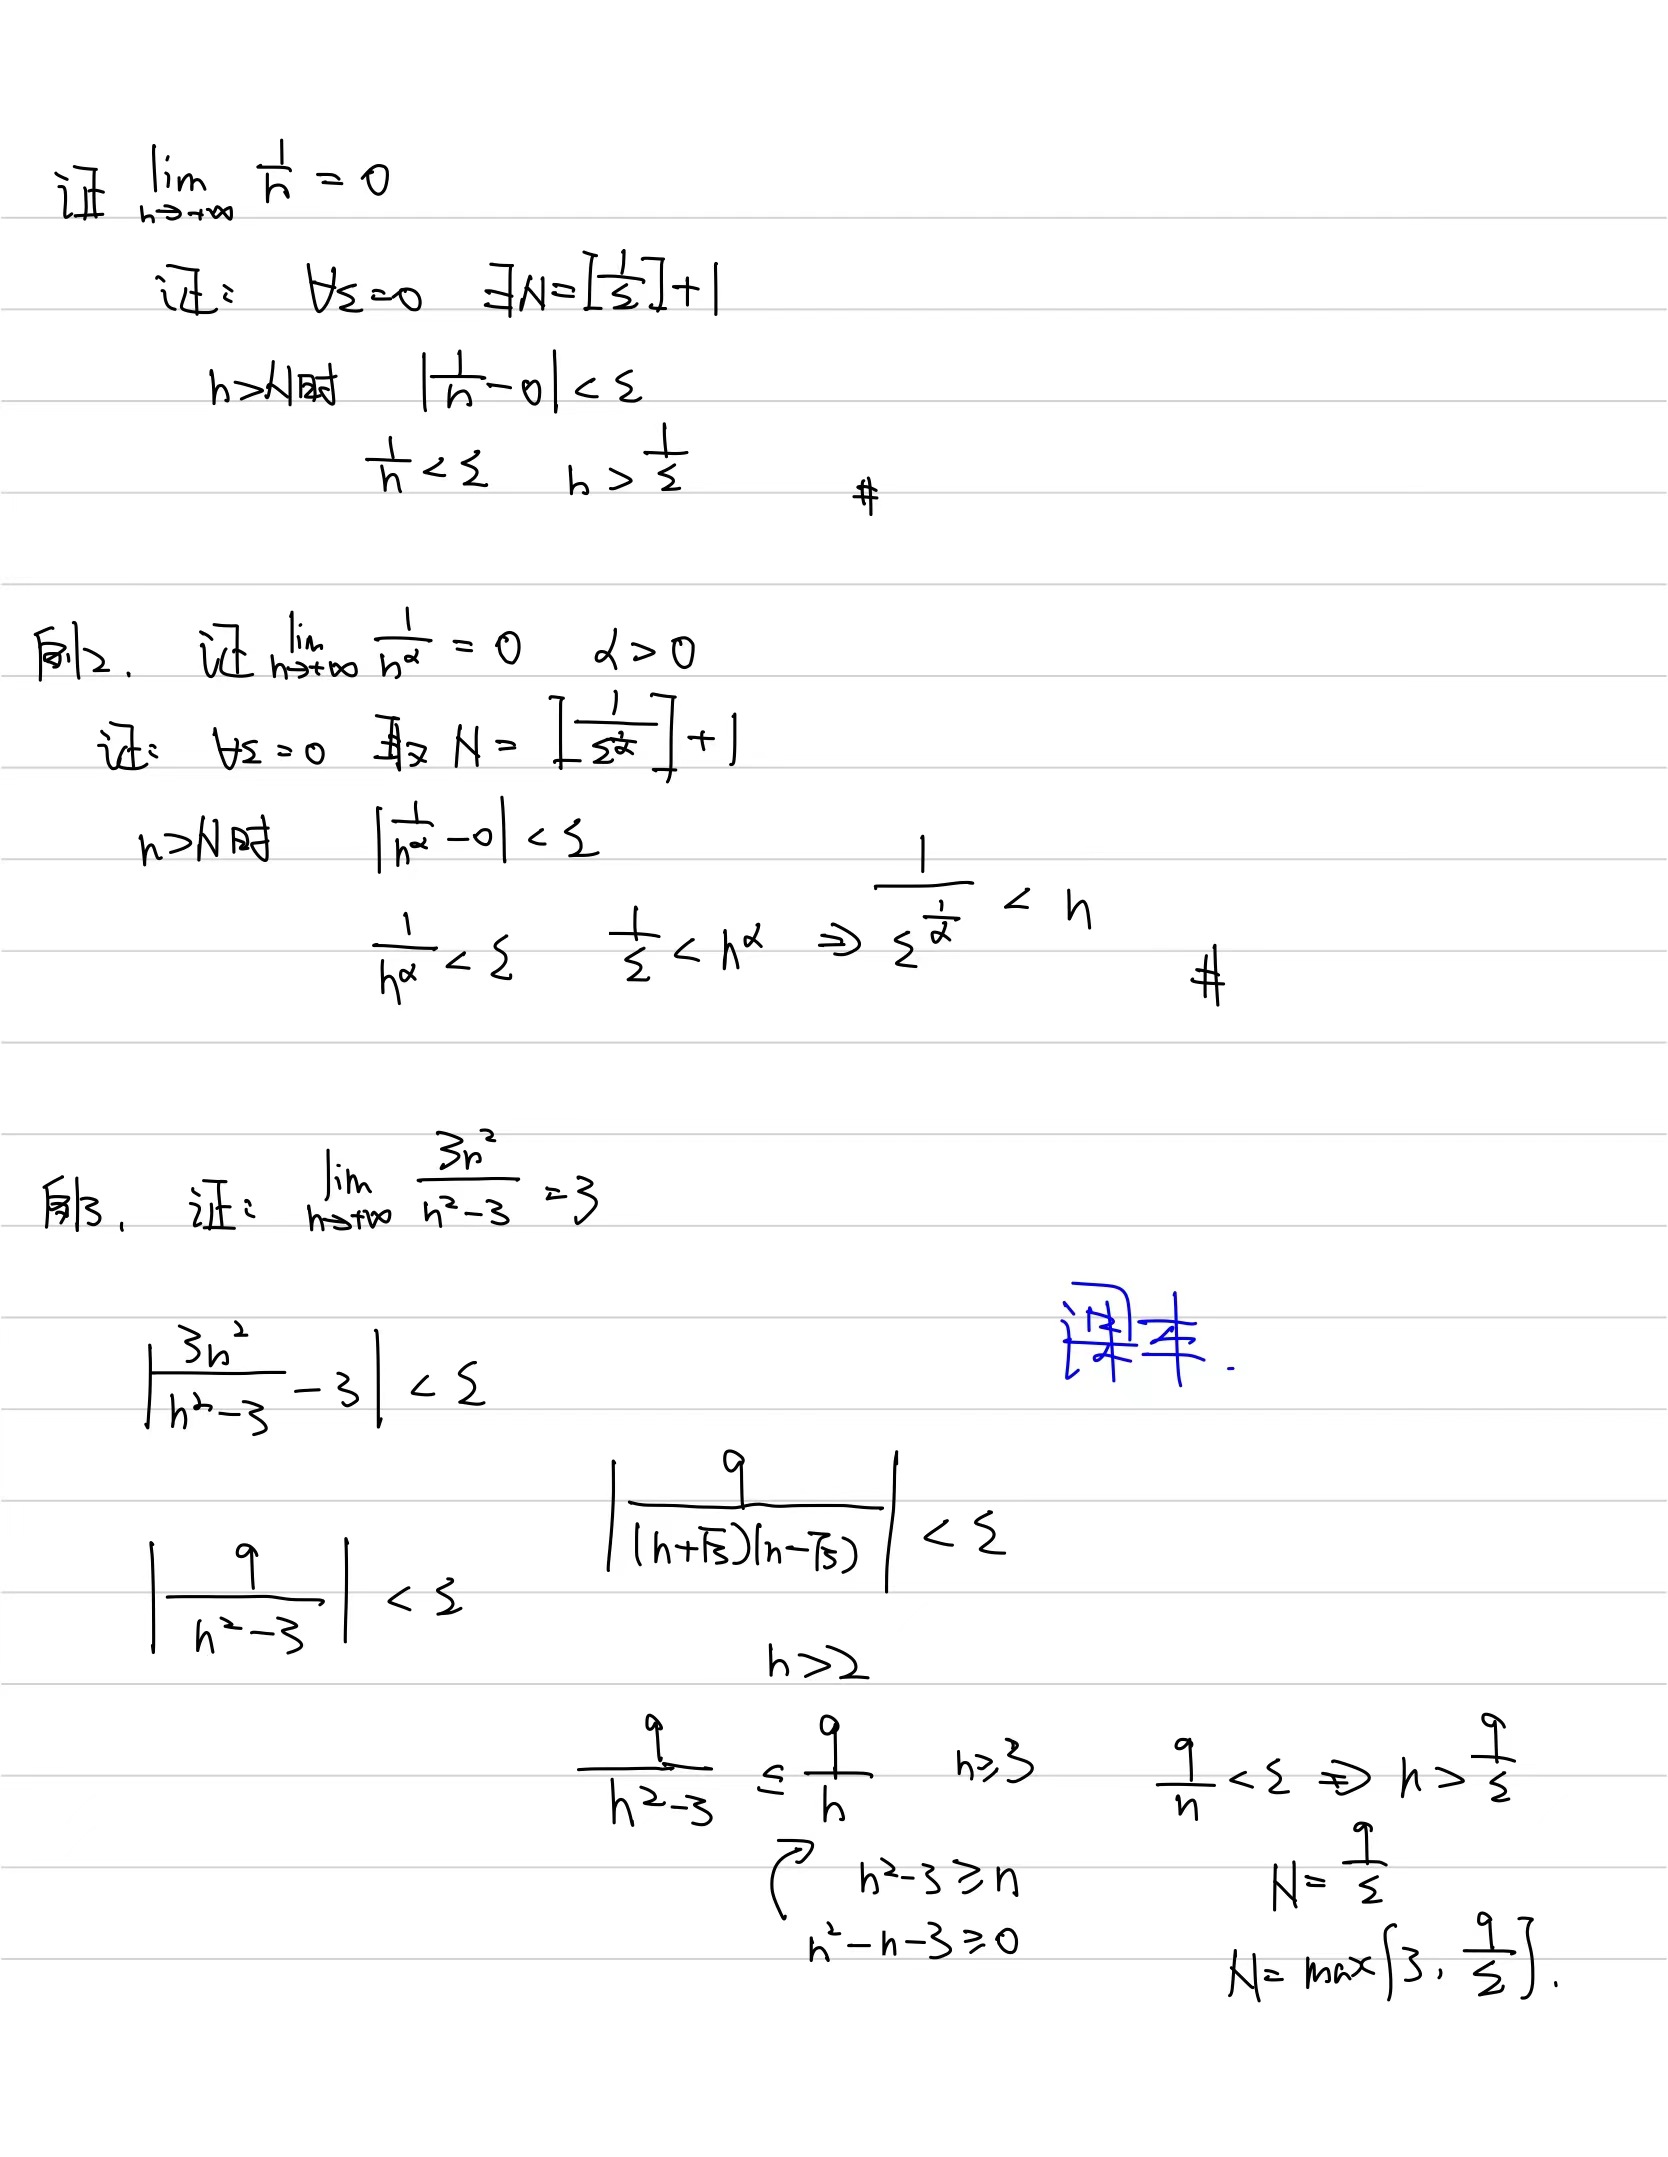 证 lim_{n→+∞} 1/n = 0
证: ∀ε=0 ∃N=[1/ε]+1
n>N时 |1/n-0|<ε
1/n<ε n>1/ε #
例2. 证 lim_{n→+∞} 1/n^α = 0 α>0
证: ∀ε=0 ∃取 N=[1/ε^{1/α}]+1
n>N时 |1/n^α-0|<ε
1/n^α<ε 1/ε<n^α ⇒ 1/ε^{1/α}<n #
例3. 证: lim_{n→+∞} 3n²/(n²-3) =3
课本.
|3n²/(n²-3) -3|<ε
|9/(n²-3)|<ε |9/((n+√3)(n-√3))|<ε
n>2
9/(n²-3) ≤ 9/n n≥3 9/n<ε ⇒ n>9/ε
n²-3≥n N=9/ε
n²-n-3≥0 N=max{3, 9/ε}.